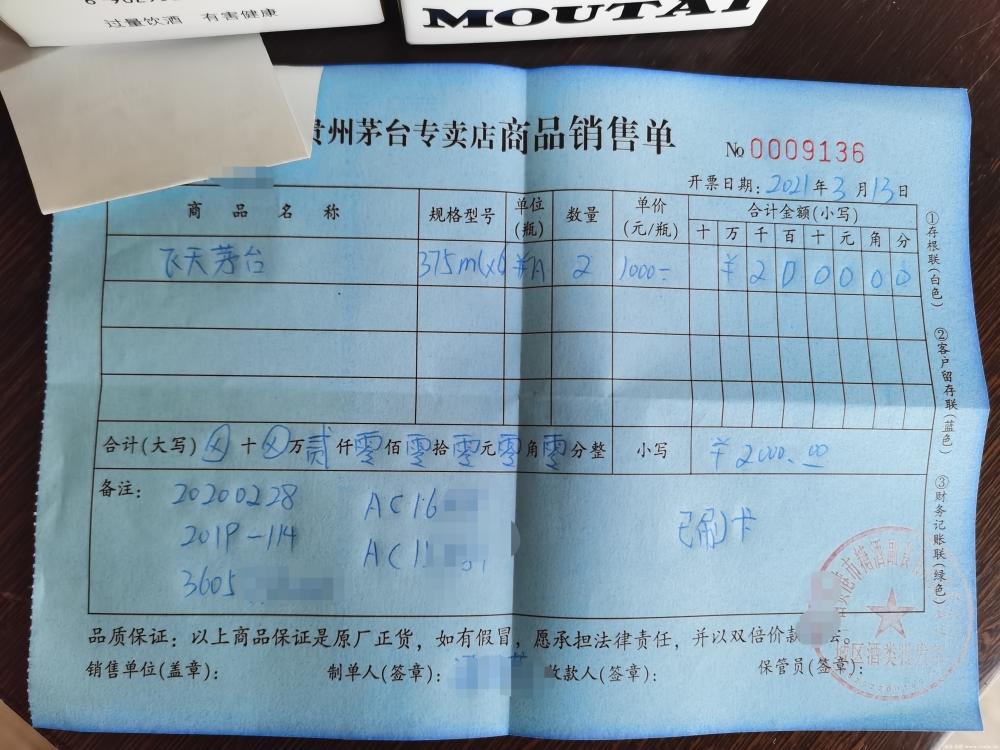 过量饮酒 有害健康
MOUTAI
贵州茅台专卖店商品销售单
No 0009136
开票日期: 2021年3月13日
商品名称 规格型号 单位(瓶) 数量 单价(元/瓶) 合计金额(小写)
十 万 千 百 十 元 角 分
飞天茅台 375ml×6 2 1000- ¥ 2 0 0 0 0 0
合计(大写) ⊗十⊗万贰仟零佰零拾零元零角零分整 小写 ¥2000.00
备注: 20200228 AC16
2019-114 AC11
3605
已刷卡
品质保证: 以上商品保证是原厂正货, 如有假冒, 愿承担法律责任, 并以双倍价款
销售单位(盖章): 制单人(签章): 收款人(签章): 保管员(签章):
①存根联(白色) ②客户留存联(蓝色) ③财务记账联(绿色)
市糖酒副食
城区酒类批发部